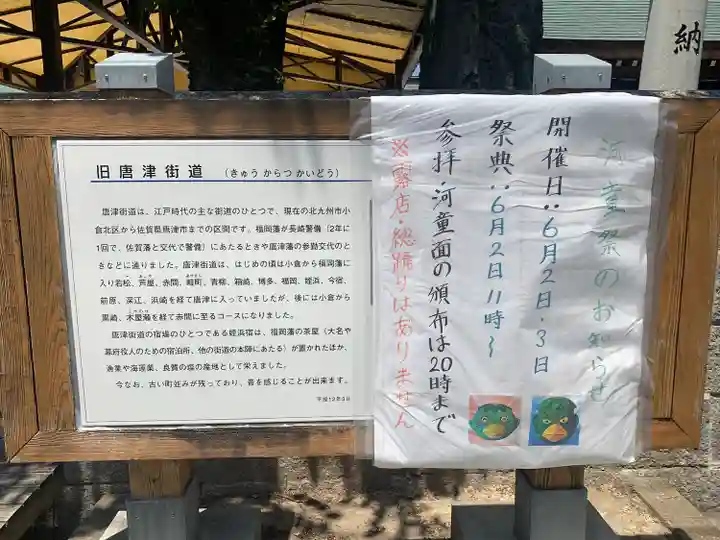 旧唐津街道 (きゅう からつ かいどう)
唐津街道は、江戸時代の主な街道のひとつで、現在の北九州市小
倉北区から佐賀県唐津市までの区間です。福岡藩が長崎警備(2年に
1回で、佐賀藩と交代で警備)にあたるときや唐津藩の参勤交代のと
きなどに通りました。唐津街道は、はじめの頃は小倉から福岡藩に
入り若松、芦屋、赤間、畦町、青柳、箱崎、博多、福岡、姪浜、今宿、
前原、深江、浜崎を経て唐津に入っていましたが、後には小倉から
黒崎、木屋瀬を経て赤間に至るコースになりました。
唐津街道の宿場のひとつである姪浜宿は、福岡藩の茶屋(大名や
幕府役人のための宿泊所、他の街道の本陣にあたる)が置かれたほか、
漁業や海運業、良質の塩の産地として栄えました。
今なお、古い町並みが残っており、昔を感じることが出来ます。
河童祭のお知らせ
開催日:6月2日・3日
祭典:6月2日11時〜
参拝・河童面の頒布は20時まで
※露店・総踊りはありません
納